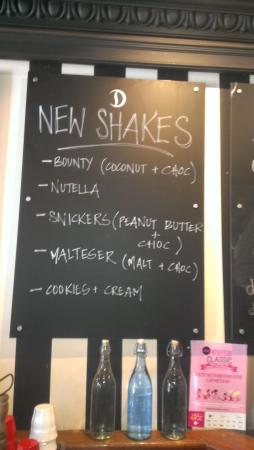 D
NEW SHAKES
- BOUNTY (COCONUT + CHOC)
- NUTELLA
- SNICKERS (PEANUT BUTTER
+
CHOC)
- MALTESER (MALT + CHOC)
- COOKIES + CREAM
CLASSIC